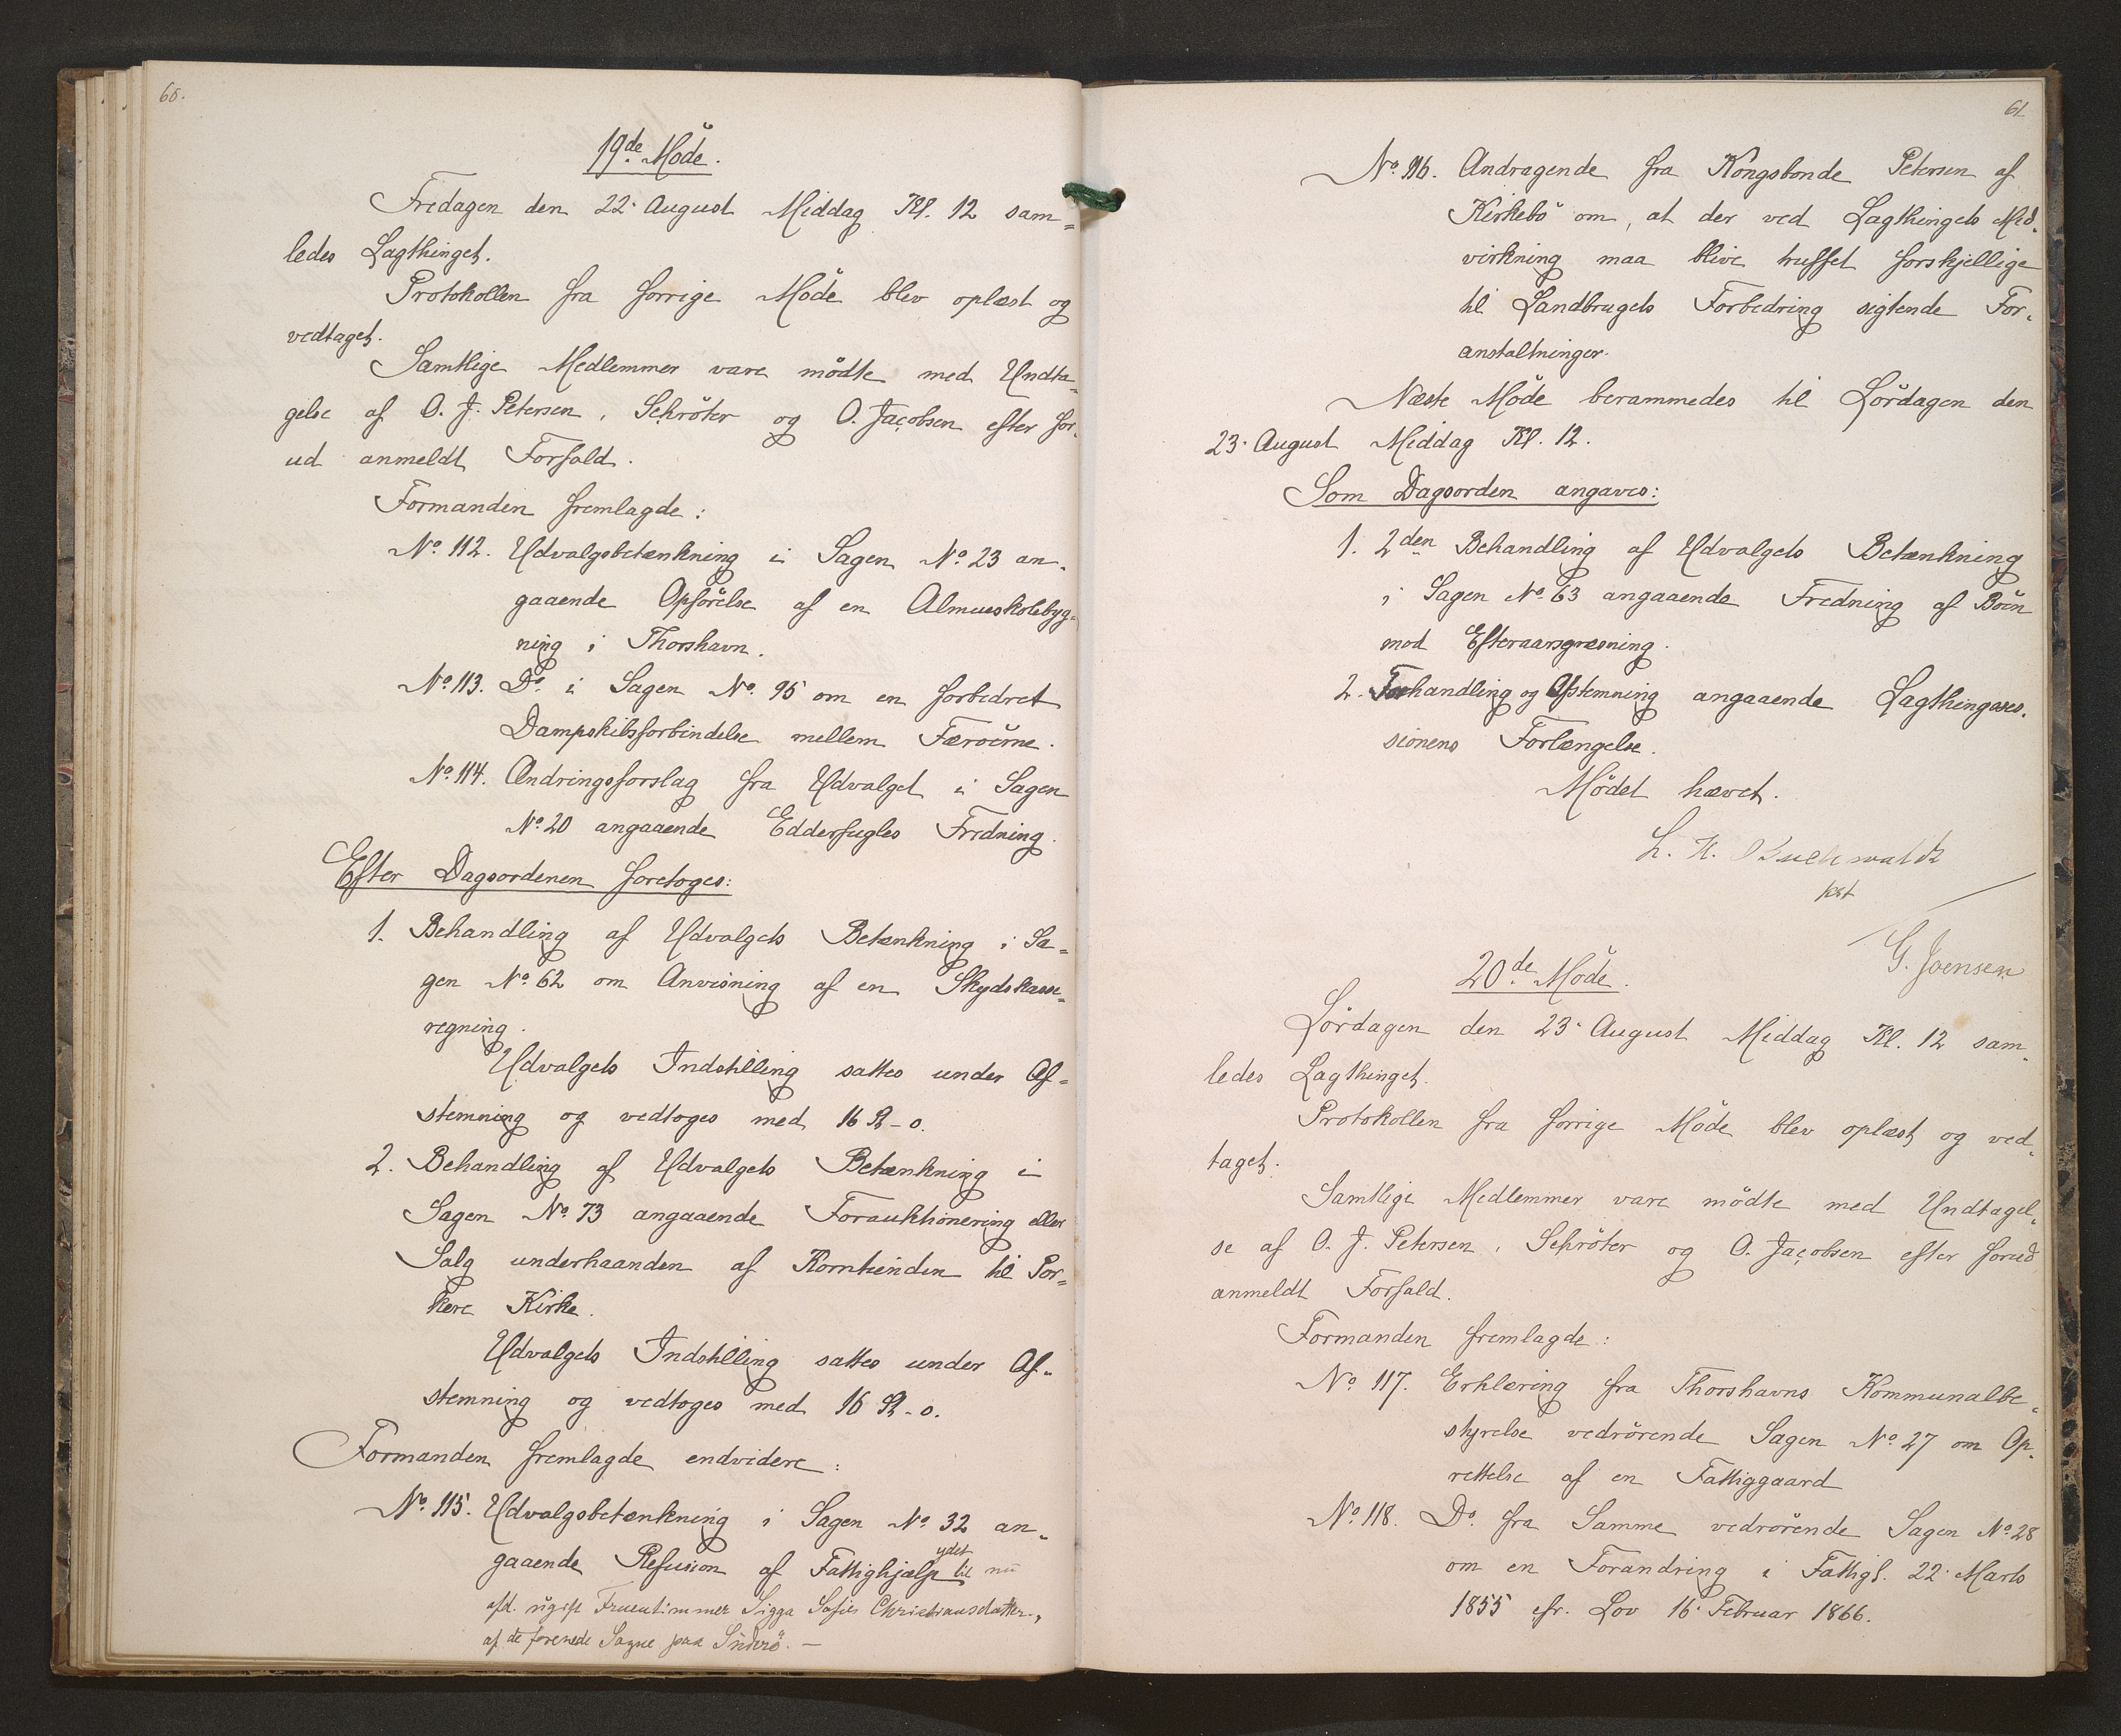 60.
19de Möde.
Fredagen den 22. August Middag Kl. 12 sam=
ledes Lagthinget.
Protokollen fra forrige Möde blev oplæst og
vedtaget.
Samtlige Medlemmer vare mödte med Undta=
gelse af O. J. Petersen, Schröter og O. Jacobsen efter for=
ud anmeldt Forfald.
Formanden fremlagde:
No. 112. Udvalgsbetænkning i Sagen No. 23 an=
gaaende Opförelse af en Almueskolebyg=
ning i Thorshavn.
No. 113. Do. i Sagen No. 95 om en forbedret
Dampskibsforbindelse mellem Færöerne.
No. 114. Ændringsforslag fra Udvalget i Sagen
No. 20 angaaende Edderfugles Fredning.
Efter Dagsordenen foretoges:
1. Behandling af Udvalgets Betænkning i Sa=
gen No. 62 om Anvisning af en Skydskasse=
regning.
Udvalgets Indstilling sattes under Af=
stemning og vedtoges med 16 St - 0.
2. Behandling af Udvalgets Betænkning i
Sagen No. 73 angaaende Forauktionering eller
Salg underhaanden af Korntienden til Por=
kere Kirke.
Udvalgets Indstilling sattes under Af=
stemning og vedtoges med 16 St - 0.
Formanden fremlagde endvidere:
No. 115. Udvalgsbetænkning i Sagen No. 32 an=
gaaende Refusion af Fattighjælp ydet til nu
afd. ugift Fruentimmer Sigga Sofie Christiansdatter,
af de forenede Sogne paa Suderö. —
61
No. 116. Andragende fra Kongsbonde Petersen af
Kirkebö om, at der ved Lagthingets Med=
virkning maa blive truffet forskjellige
til Landbrugets Forbedring sigtende For=
anstaltninger.
Næste Möde berammedes til Lördagen den
23. August Middag Kl. 12.
Som Dagsorden angaves:
1. 2den Behandling af Udvalgets Betænkning
i Sagen No. 63 angaaende Fredning af Böen
mod Efteraarsgræsning.
2. Forhandling og Afstemning angaaende Lagthingsses=
sionens Forlængelse.
Mödet hævet.
L. H. Buchwaldt
kst
G. Joensen
20de Möde.
Lördagen den 23. August Middag Kl. 12 sam=
ledes Lagthinget.
Protokollen fra forrige Möde blev oplæst og ved=
taget.
Samtlige Medlemmer vare mödte med Undtagel=
se af O. J. Petersen, Schröter og O. Jacobsen efter forud
anmeldt Forfald.
Formanden fremlagde:
No. 117. Erklæring fra Thorshavns Kommunalbe=
styrelse vedrörende Sagen No. 27 om Op=
rettelse af en Fattiggaard
No. 118. Do. fra Samme vedrörende Sagen No. 28
om en Forandring i Fattigl. 22. Marts
1855 cfr. Lov 16. Februar 1866.